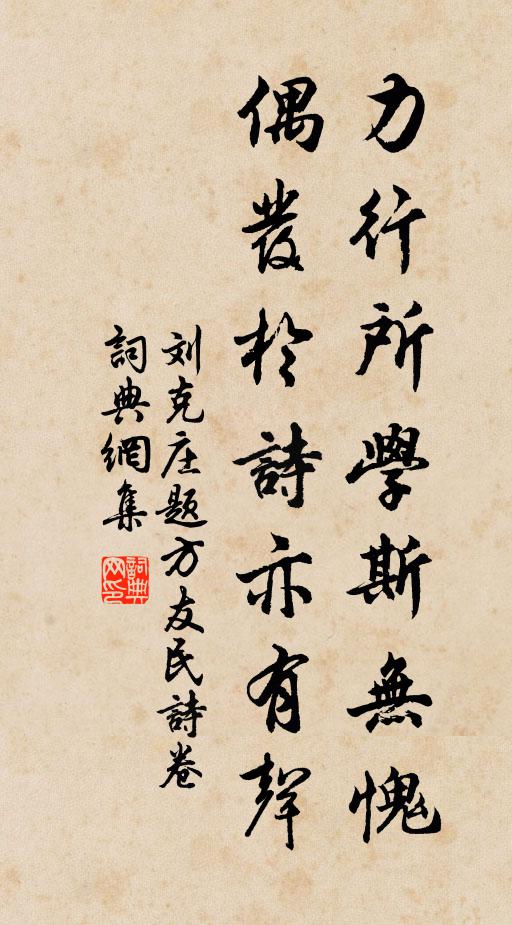 力行所學斯無愧
偶發於詩亦有聲
刘克庄题方友民詩卷
詞典網集
詞典网印